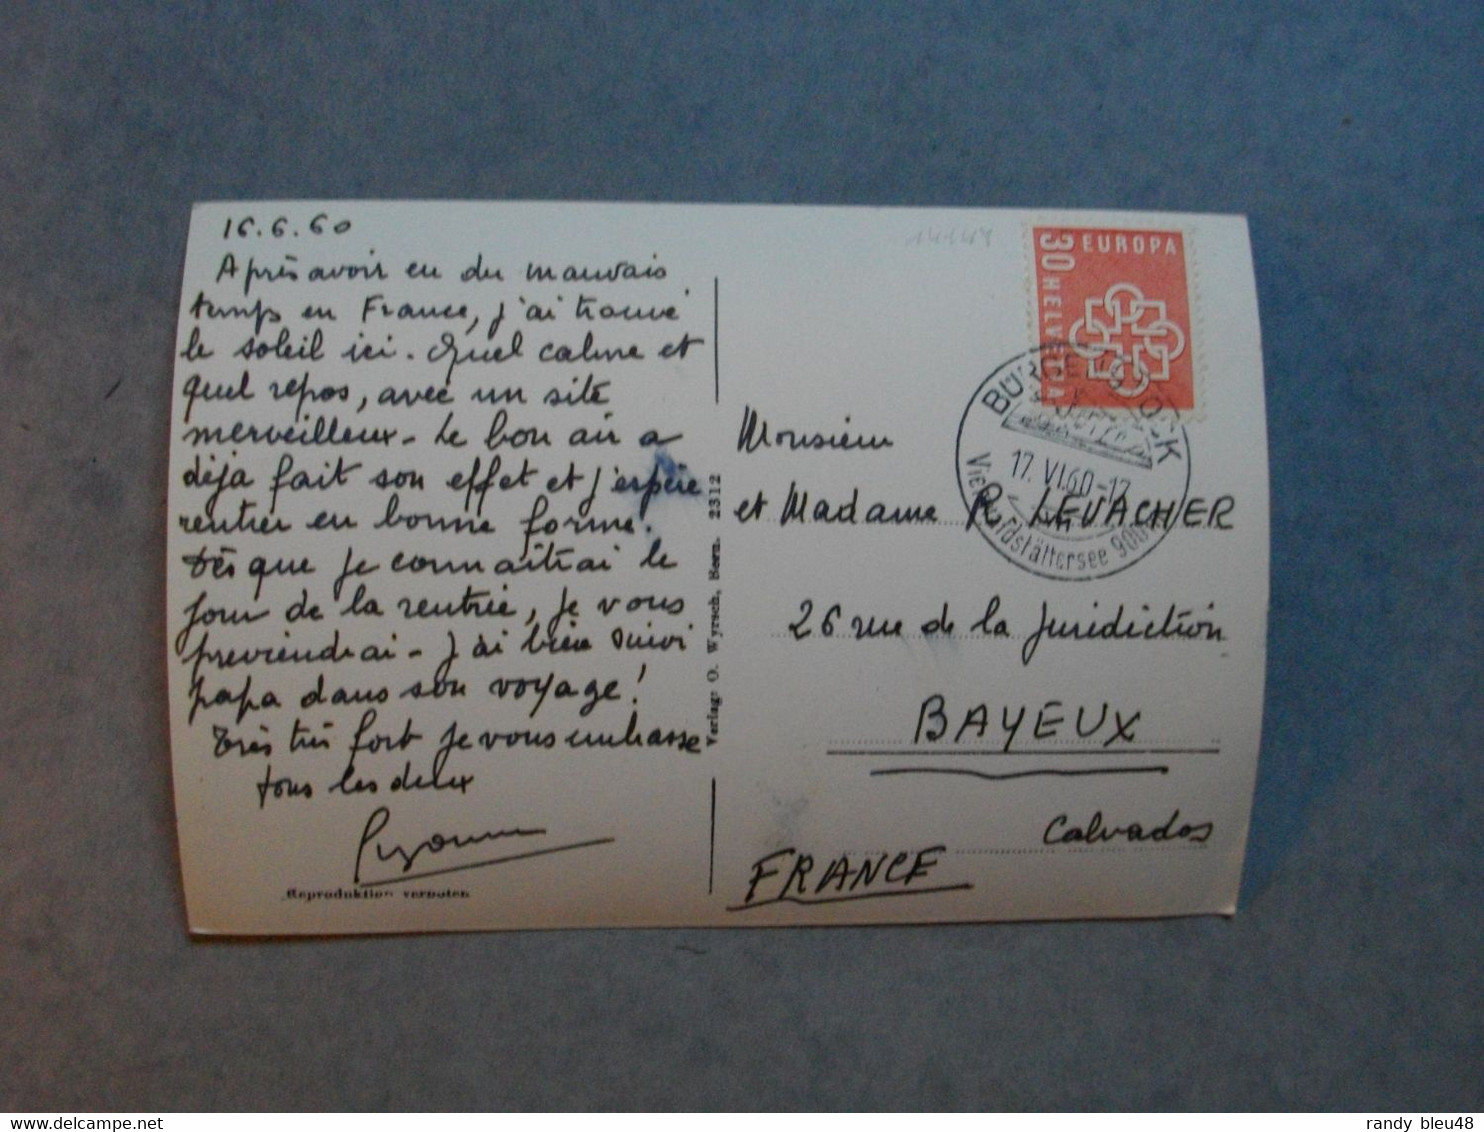 16.6.60
Après avoir eu du mauvais
temps en France, j'ai trouvé
le soleil ici. Quel calme et
quel repos, avec un site
merveilleux - Le bon air a
déja fait son effet et j'espère
rentrer en bonne forme.
Dès que je connaîtrai le
jour de la rentrée, je vous
previendrai - J'ai bien suivi
papa dans son voyage!
Très très fort je vous embrasse
tous les deux
Reproduktion verboten
Verlag: O. Wyrsch, Bern. 2312
EUROPA
30 HELVETIA
17. VI.60-12
Monsieur
et Madame R. LEVACHER
26 rue de la Juridiction
BAYEUX
Calvados
FRANCE
randy bleu48